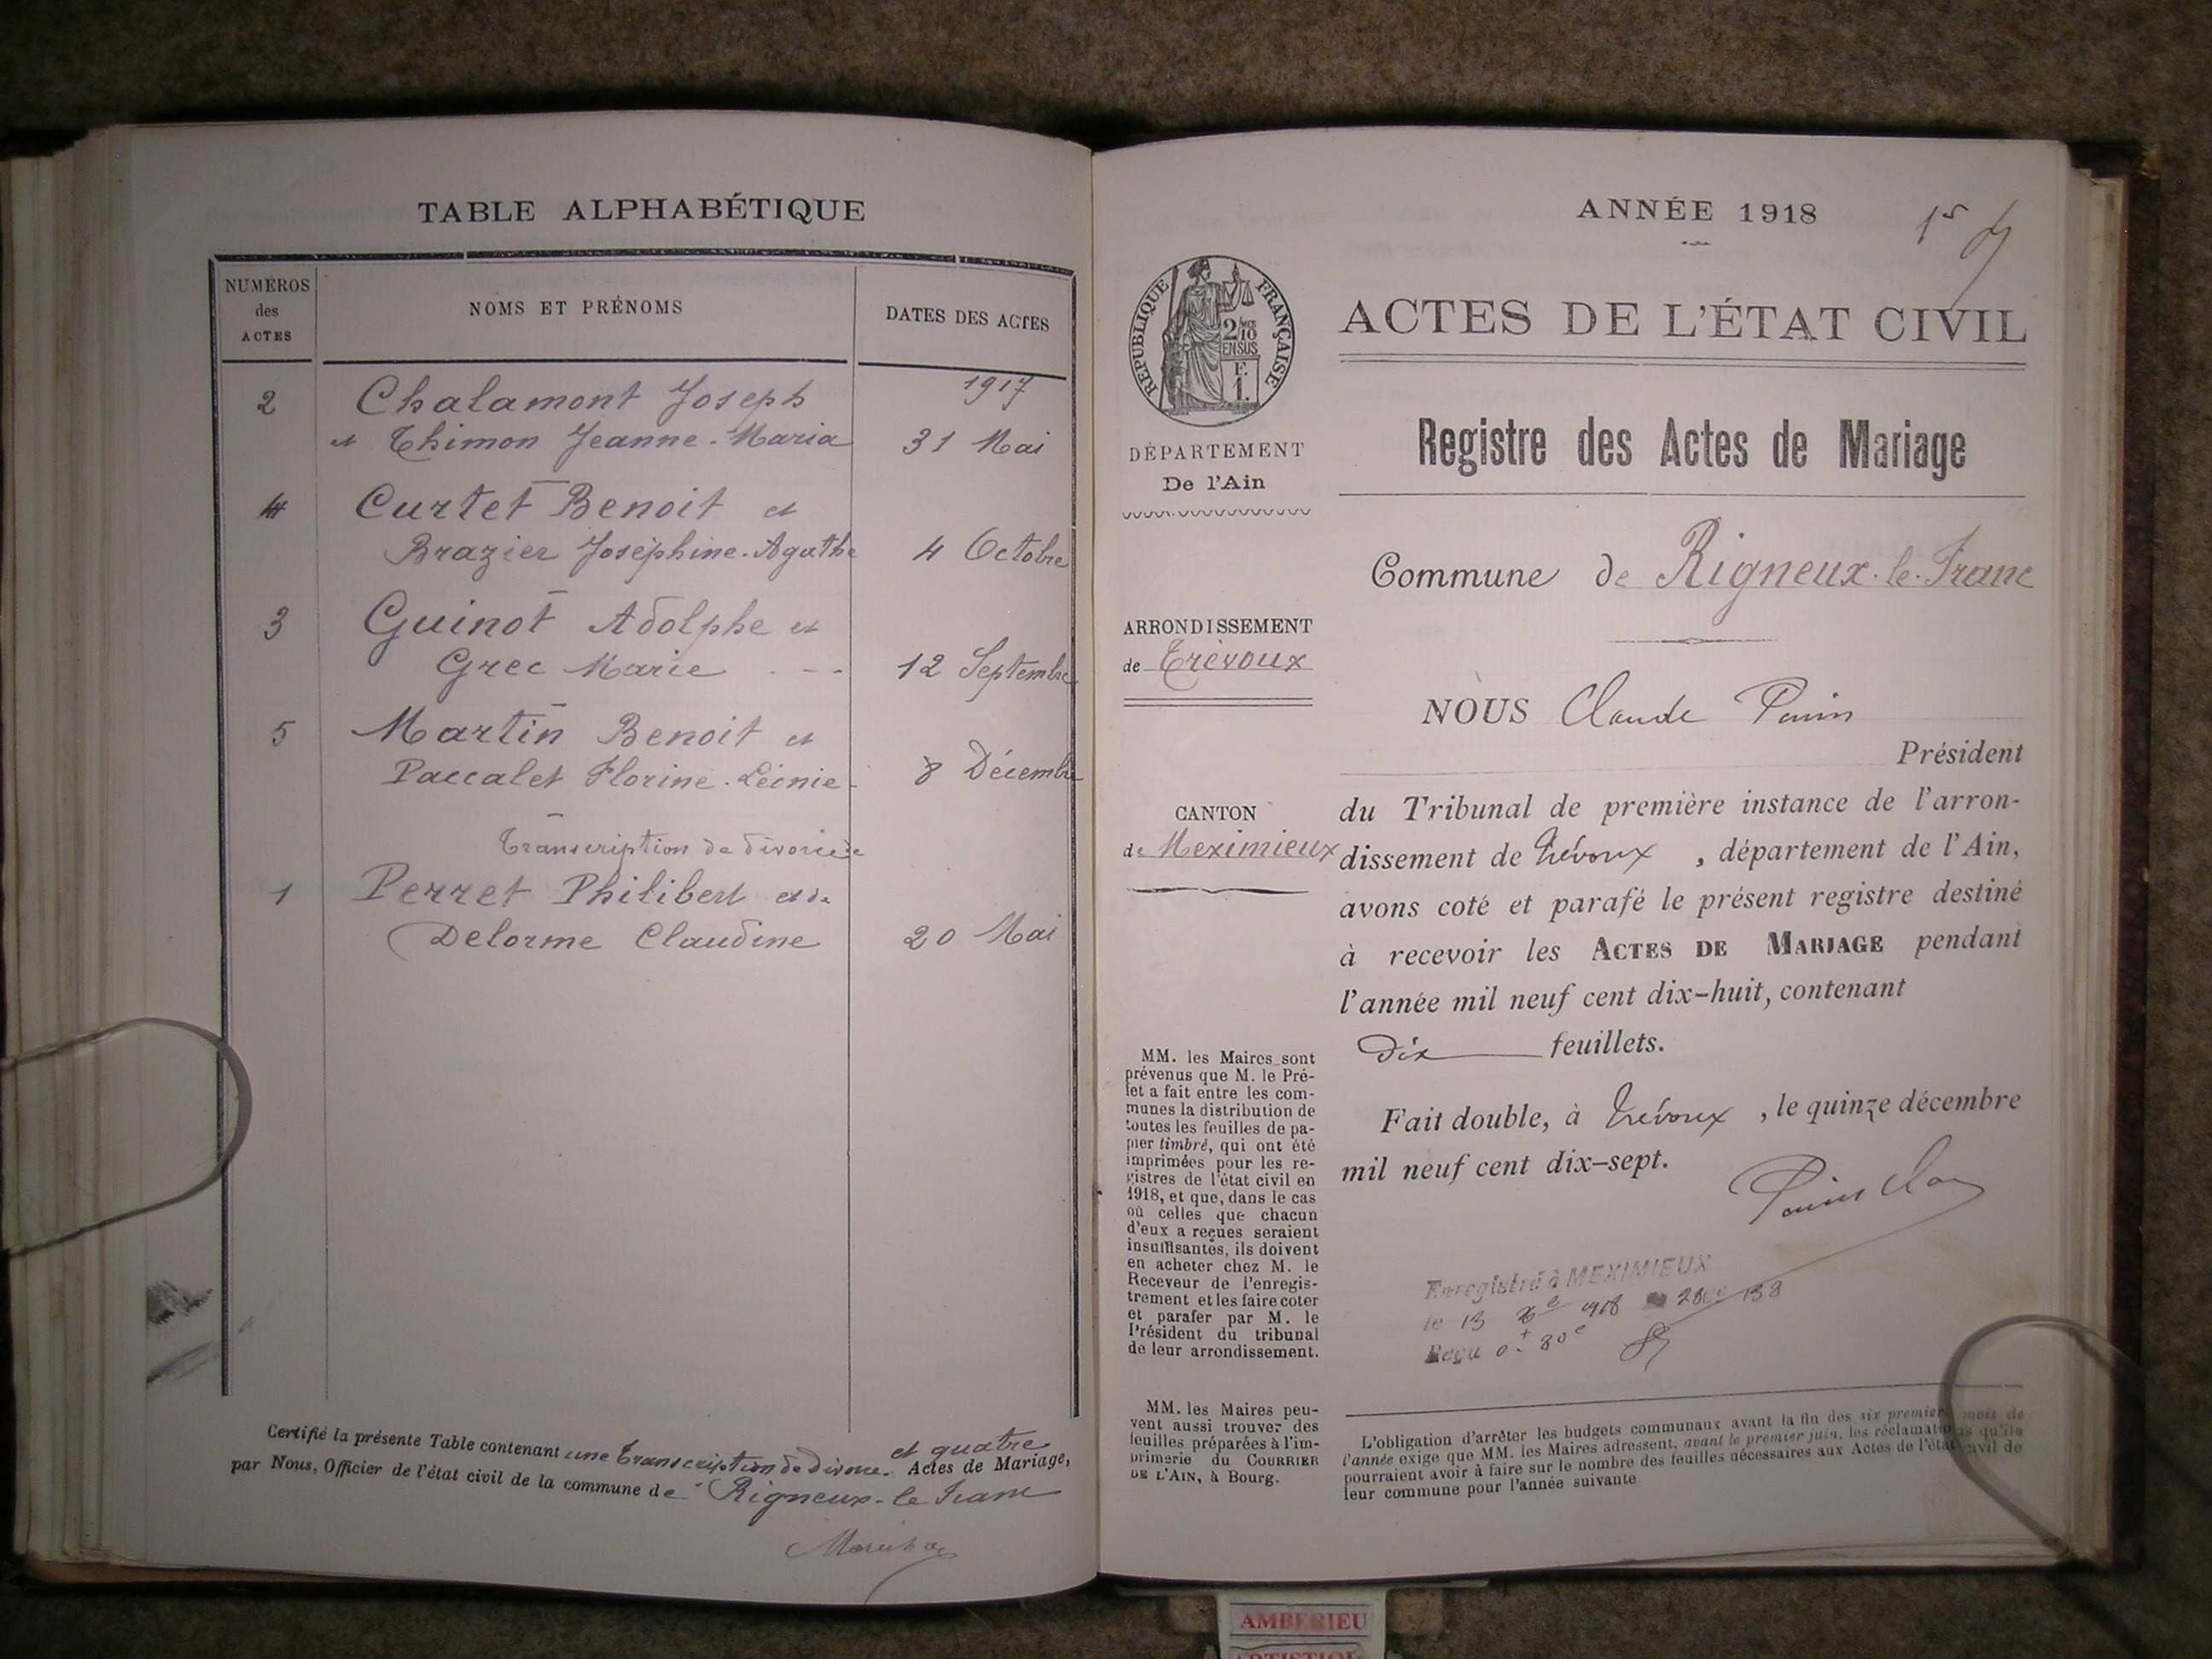 TABLE ALPHABÉTIQUE
NUMÉROS
des
ACTES
NOMS ET PRÉNOMS
DATES DES ACTES
1917
2 Chalamont Joseph
et Thimon Jeanne-Maria 31 Mai
4 Curtet Benoit et
Brazier Joséphine-Agathe 4 Octobre
3 Guinot Adolphe et
Grec Marie 12 Septembre
5 Martin Benoit et
Paccalet Florine-Léonie 8 Décembre
Transcription de divorce de
1 Perret Philibert et de
Delorme Claudine 20 Mai
Certifié la présente Table contenant une transcription de divorce et quatre Actes de Mariage,
par Nous, Officier de l'état civil de la commune de Rigneux-le-Franc
ANNÉE 1918
RÉPUBLIQUE FRANÇAISE
2/10
EN SUS
F.
1.
DÉPARTEMENT
De l'Ain
ARRONDISSEMENT
de Trévoux
CANTON
de Meximieux
MM. les Maires sont
prévenus que M. le Pré-
fet a fait entre les com-
munes la distribution de
toutes les feuilles de pa-
pier timbré, qui ont été
imprimées pour les re-
gistres de l'état civil en
1918, et que, dans le cas
où celles que chacun
d'eux a reçues seraient
insuffisantes, ils doivent
en acheter chez M. le
Receveur de l'enregis-
trement et les faire coter
et parafer par M. le
Président du tribunal
de leur arrondissement.
MM. les Maires peu-
vent aussi trouver des
feuilles préparées à l'im-
primerie du COURRIER
DE L'AIN, à Bourg.
ACTES DE L'ÉTAT CIVIL
Registre des Actes de Mariage
Commune de Rigneux-le-Franc
NOUS Claude
Président
du Tribunal de première instance de l'arron-
dissement de Trévoux, département de l'Ain,
avons coté et parafé le présent registre destiné
à recevoir les ACTES DE MARIAGE pendant
l'année mil neuf cent dix-huit, contenant
Dix feuillets.
Fait double, à Trévoux, le quinze décembre
mil neuf cent dix-sept.
Enregistré à MEXIMIEUX
le 13
Reçu
L'obligation d'arrêter les budgets communaux avant la fin des six premiers mois de
l'année exige que MM. les Maires adressent, avant le premier juin, les réclamations qu'ils
pourraient avoir à faire sur le nombre des feuilles nécessaires aux Actes de l'état civil de
leur commune pour l'année suivante.
AMBERIEU